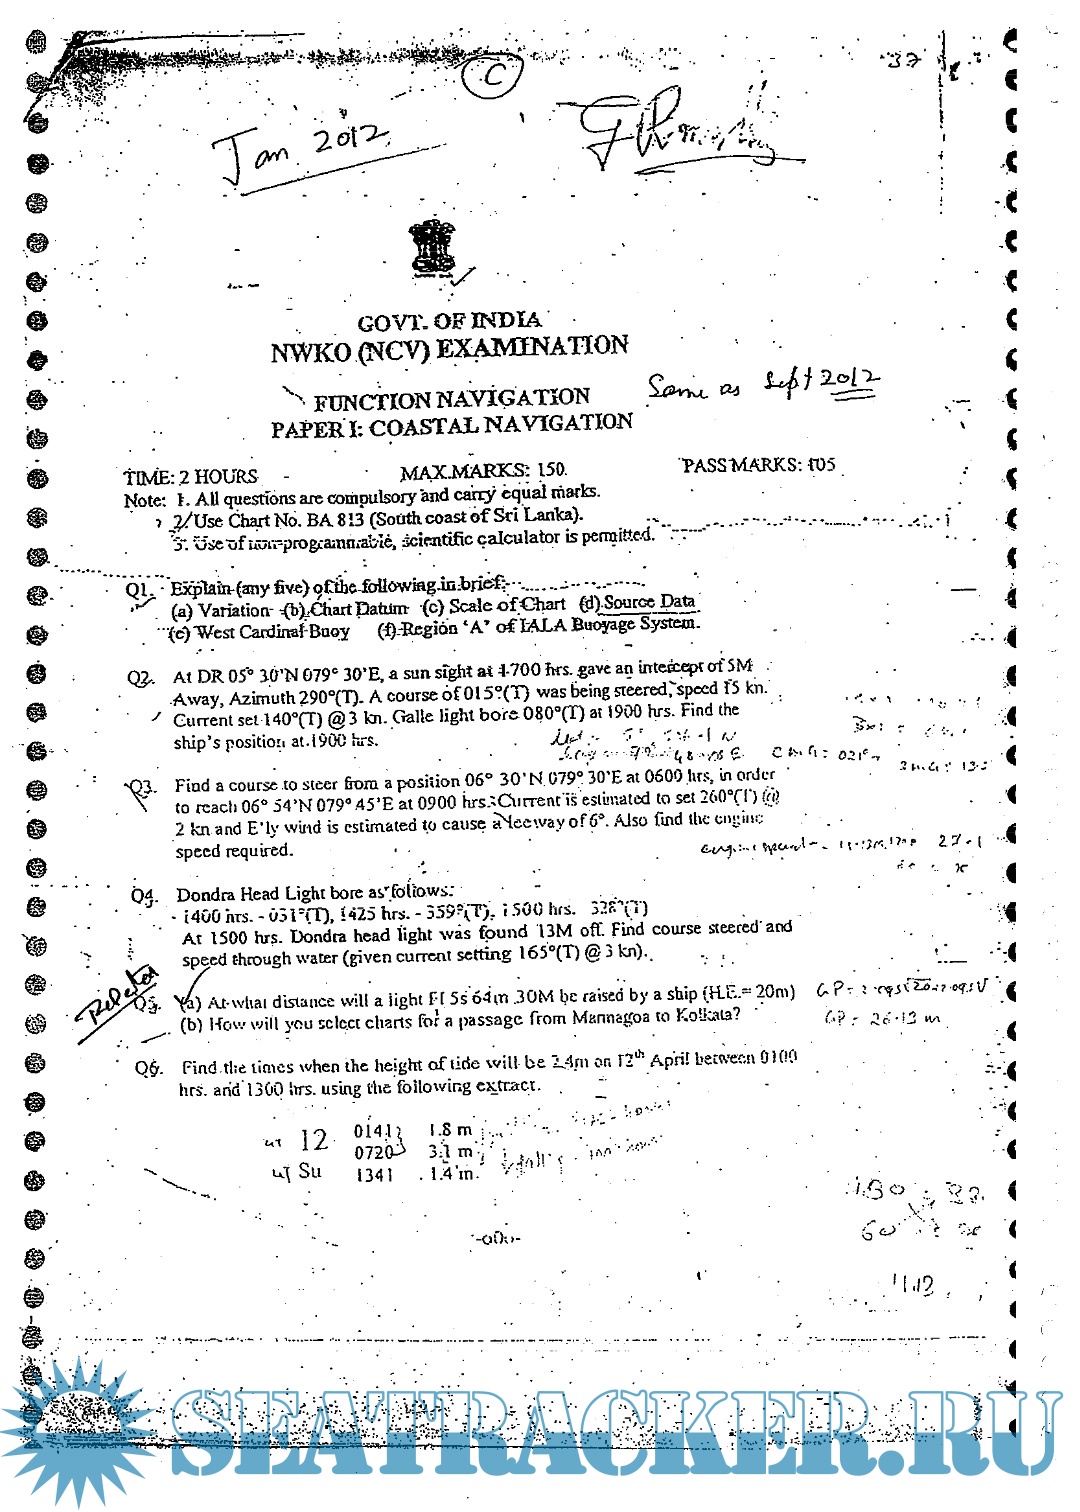 37
C
Jan 2012
GOVT. OF INDIA
NWKO (NCV) EXAMINATION
Same as Sept 2012
FUNCTION NAVIGATION
PAPER I: COASTAL NAVIGATION
TIME: 2 HOURS - MAX.MARKS: 150. PASS MARKS: 105
Note: 1. All questions are compulsory and carry equal marks.
2. Use Chart No. BA 813 (South coast of Sri Lanka).
3. Use of non-programmable, scientific calculator is permitted.
Q1. Explain (any five) of the following in brief:
(a) Variation (b) Chart Datum (c) Scale of Chart (d) Source Data
(e) West Cardinal Buoy (f) Region 'A' of IALA Buoyage System.
Q2. At DR 05° 30'N 079° 30'E, a sun sight at 1700 hrs. gave an intercept of 5M
Away, Azimuth 290°(T). A course of 015°(T) was being steered, speed 15 kn.
Current set 140°(T) @ 3 kn. Galle light bore 080°(T) at 1900 hrs. Find the
ship's position at 1900 hrs.
Q3. Find a course to steer from a position 06° 30'N 079° 30'E at 0600 hrs, in order
to reach 06° 54'N 079° 45'E at 0900 hrs. Current is estimated to set 260°(T) @
2 kn and E'ly wind is estimated to cause a leeway of 6°. Also find the engine
speed required.
Q4. Dondra Head Light bore as follows:
1400 hrs. - 031°(T), 1425 hrs. - 359°(T), 1500 hrs. 328°(T)
At 1500 hrs. Dondra head light was found 13M off. Find course steered and
speed through water (given current setting 165°(T) @ 3 kn).
Repeated
Q5. (a) At what distance will a light Fl 5s 64m 30M be raised by a ship (H.E.= 20m)
(b) How will you select charts for a passage from Marmagoa to Kolkata?
GP = 26.13 m
Q6. Find the times when the height of tide will be 2.4m on 12th April between 0100
hrs. and 1300 hrs. using the following extract.
12 0141 1.8 m
0720 3.1 m
Su 1341 1.4 m.
-o0o-
SEATRACKER.RU